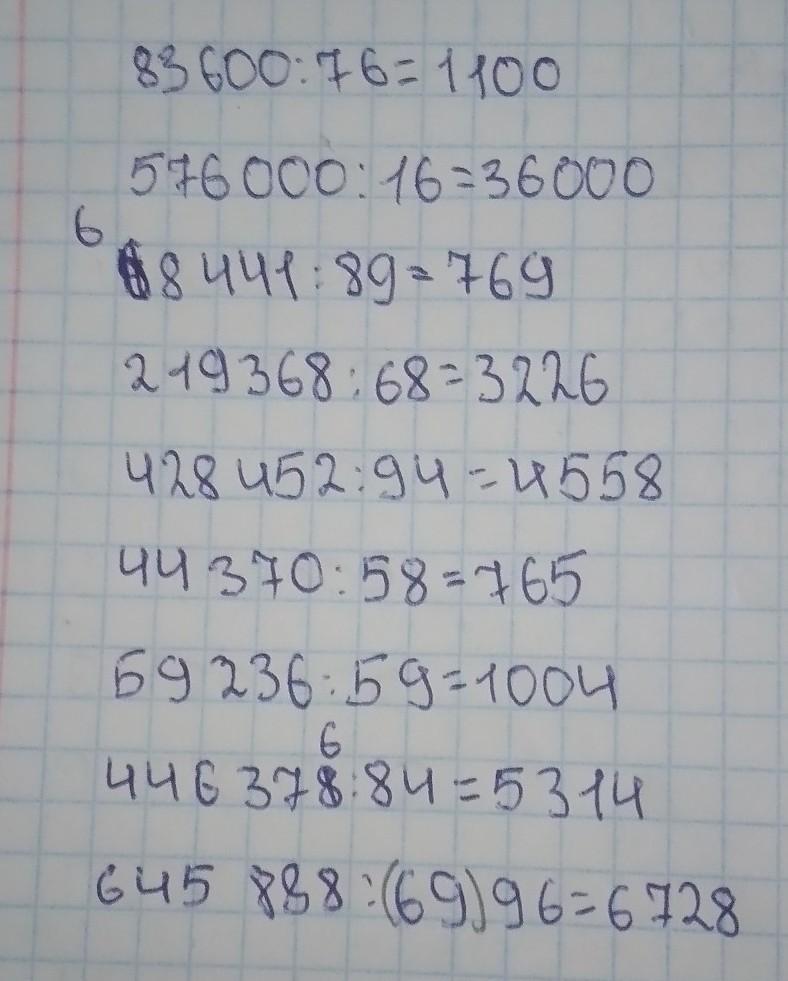 83600:76=1100
576000:16=36000
6
68441:89=769
219368:68=3226
428452:94=4558
44370:58=765
59236:59=1004
6
446378:84=5314
645 888:(69)96=6728